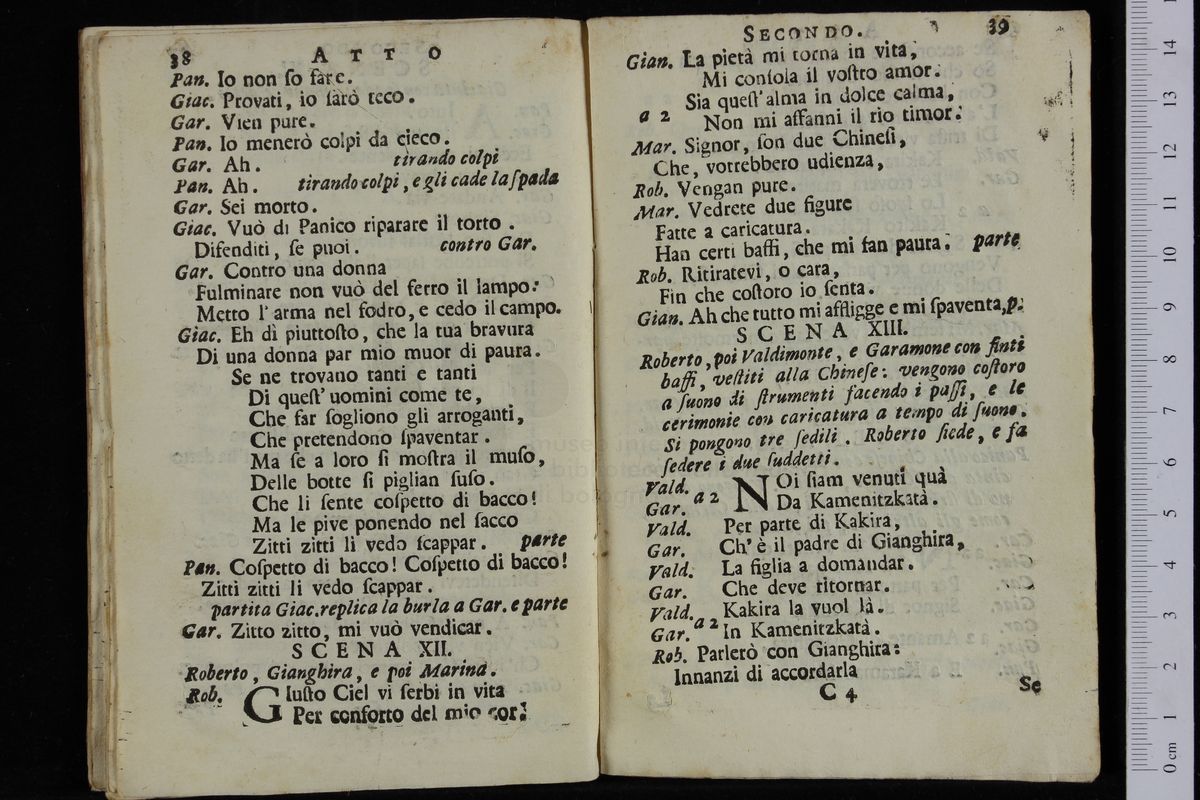 38 ATTO
Pan. Io non ſo fare.
Giac. Provati, io ſarò teco.
Gar. Vien pure.
Pan. Io menerò colpi da cieco.
Gar. Ah. tirando colpi
Pan. Ah. tirando colpi, e gli cade la ſpada
Gar. Sei morto.
Giac. Vuò di Panico riparare il torto.
Difenditi, ſe puoi. contro Gar.
Gar. Contro una donna
Fulminare non vuò del ferro il lampo:
Metto l'arma nel fodro, e cedo il campo.
Giac. Eh dì piuttoſto, che la tua bravura
Di una donna par mio muor di paura.
Se ne trovano tanti e tanti
Di queſt' uomini come te,
Che far ſogliono gli arroganti,
Che pretendono ſpaventar.
Ma ſe a loro ſi moſtra il muſo,
Delle botte ſi piglian ſuſo.
Che li ſente coſpetto di bacco!
Ma le pive ponendo nel ſacco
Zitti zitti li vedo ſcappar. parte
Pan. Coſpetto di bacco! Coſpetto di bacco!
Zitti zitti li vedo ſcappar.
partita Giac. replica la burla a Gar. e parte
Gar. Zitto zitto, mi vuò vendicar.
SCENA XII.
Roberto, Gianghira, e poi Marina.
Rob. GIuſto Ciel vi ſerbi in vita
Per conforto del mio cor!
SECONDO. 39
Gian. La pietà mi torna in vita,
Mi conſola il voſtro amor.
Sia queſt'alma in dolce calma,
a 2 Non mi affanni il rio timor.
Mar. Signor, ſon due Chineſi,
Che, vorrebbero udienza,
Rob. Vengan pure.
Mar. Vedrete due figure
Fatte a caricatura.
Han certi baffi, che mi fan paura. parte
Rob. Ritiratevi, o cara,
Fin che coſtoro io ſenta.
Gian. Ah che tutto mi affligge e mi ſpaventa, p.
SCENA XIII.
Roberto, poi Valdimonte, e Garamone con finti
baffi, veſtiti alla Chineſe: vengono coſtoro
a ſuono di ſtrumenti facendo i paſſi, e le
cerimonie con caricatura a tempo di ſuono.
Si pongono tre ſedili. Roberto ſiede, e fa
ſedere i due ſuddetti.
Vald. a 2 NOi ſiam venuti quà
Gar. Da Kamenitzkatà.
Vald. Per parte di Kakira,
Gar. Ch' è il padre di Gianghira,
Vald. La figlia a domandar.
Gar. Che deve ritornar.
Vald. a 2 Kakira la vuol là.
Gar. In Kamenitzkatà.
Rob. Parlerò con Gianghira:
Innanzi di accordarla
C 4 Se
14
13
12
11
10
9
8
7
6
5
4
3
2
1
0 cm